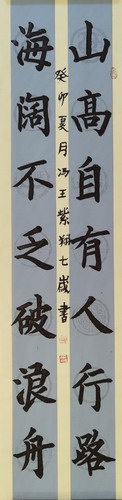 山高自有人行路
海阔不乏破浪舟
癸卯夏月冯王紫翔七岁书